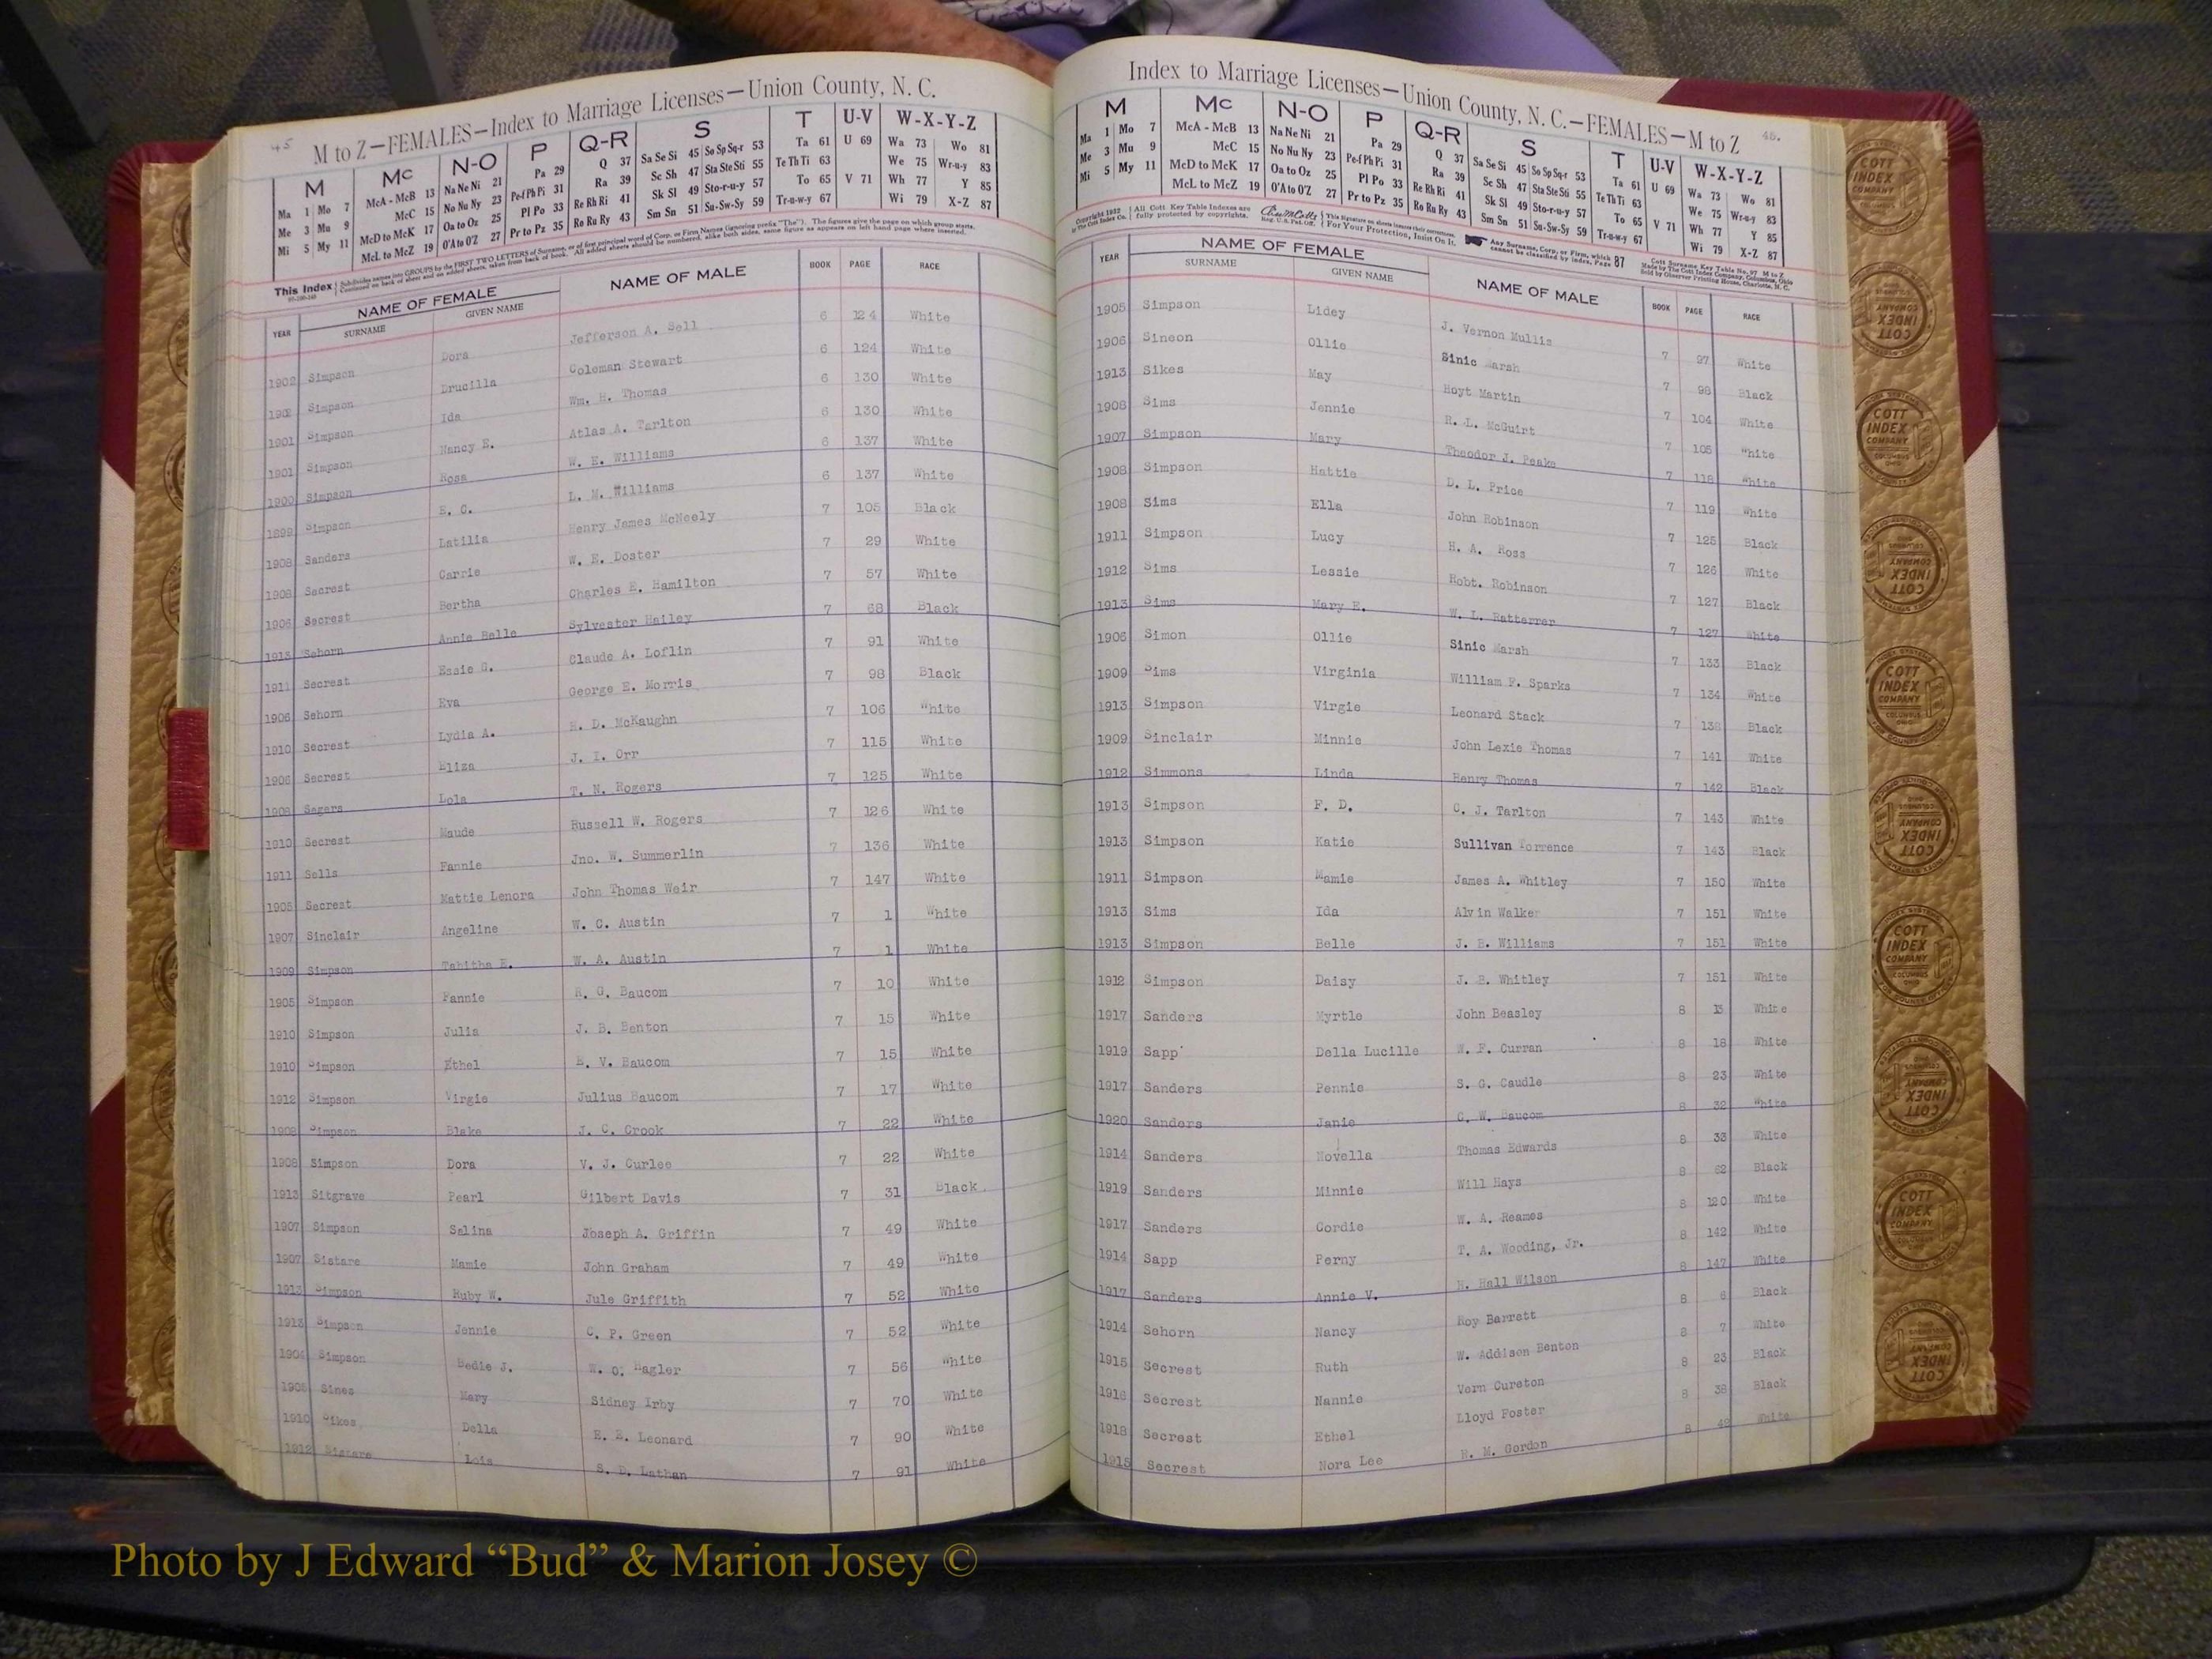 45
M to Z—FEMALES—Index to Marriage Licenses—Union County, N. C.
M Mc N-O P Q-R S T U-V W-X-Y-Z
Ma 1 Mo 7 McA - McB 13 Na Ne Ni 21 Pa 29 Q 37 Sa Se Si 45 So Sp Sq-r 53 Ta 61 U 69 Wa 73 Wo 81
Me 3 Mu 9 McC 15 No Nu Ny 23 Pe-f Ph Pi 31 Ra 39 Sc Sh 47 Sta Ste Sti 55 Te Th Ti 63 We 75 Wr-u-y 83
Mi 5 My 11 McD to McK 17 Oa to Oz 25 Pl Po 33 Re Rh Ri 41 Sk Sl 49 Sto-r-u-y 57 To 65 V 71 Wh 77 Y 85
McL to McZ 19 O'A to O'Z 27 Pr to Pz 35 Ro Ru Ry 43 Sm Sn 51 Su-Sw-Sy 59 Tr-u-w-y 67 Wi 79 X-Z 87
This Index
YEAR NAME OF FEMALE SURNAME GIVEN NAME NAME OF MALE BOOK PAGE RACE
1902 Simpson Dora Jefferson A. Sell 6 124 White
1902 Simpson Drucilla Coleman Stewart 6 124 White
1901 Simpson Ida Wm. H. Thomas 6 130 White
1901 Simpson Nancy E. Atlas A. Tarlton 6 130 White
1900 Simpson Rosa W. E. Williams 6 137 White
1899 Simpson E. C. L. M. Williams 6 137 White
1908 Sanders Latilia Henry James McNeely 7 105 Black
1908 Secrest Carrie W. E. Doster 7 29 White
1906 Secrest Bertha Charles E. Hamilton 7 57 White
1913 Sehorn Annie Belle Sylvester Hailey 7 68 Black
1911 Secrest Essie G. Claude A. Loflin 7 91 White
1906 Sehorn Eva George E. Morris 7 98 Black
1910 Secrest Lydia A. H. D. McKaughn 7 106 White
1906 Secrest Eliza J. I. Orr 7 115 White
1908 Segars Lola T. N. Rogers 7 125 White
1910 Secrest Maude Russell W. Rogers 7 126 White
1911 Sells Fannie Jno. W. Summerlin 7 136 White
1905 Secrest Mattie Lenora John Thomas Weir 7 147 White
1907 Sinclair Angeline W. C. Austin 7 1 White
1909 Simpson Tabitha E. W. A. Austin 7 1 White
1905 Simpson Fannie H. G. Baucom 7 10 White
1910 Simpson Julia J. B. Benton 7 15 White
1910 Simpson Ethel E. V. Baucom 7 15 White
1912 Simpson Virgie Julius Baucom 7 17 White
1908 Simpson Blake J. C. Crook 7 22 White
1908 Simpson Dora V. J. Curlee 7 22 White
1913 Sitgrave Pearl Gilbert Davis 7 31 Black
1907 Simpson Salina Joseph A. Griffin 7 49 White
1907 Sistare Mamie John Graham 7 49 White
1913 Simpson Ruby W. Jule Griffith 7 52 White
1913 Simpson Jennie C. P. Green 7 52 White
1904 Simpson Bedie J. W. O. Hagler 7 56 White
1905 Sines Mary Sidney Irby 7 70 White
1910 Sikes Della E. E. Leonard 7 90 White
1912 Sistare Lois S. D. Lathan 7 91 White
Index to Marriage Licenses—Union County, N. C.—FEMALES—M to Z 45.
M Mc N-O P Q-R S T U-V W-X-Y-Z
Ma 1 Mo 7 McA - McB 13 Na Ne Ni 21 Pa 29 Q 37 Sa Se Si 45 So Sp Sq-r 53 Ta 61 U 69 Wa 73 Wo 81
Me 3 Mu 9 McC 15 No Nu Ny 23 Pe-f Ph Pi 31 Ra 39 Sc Sh 47 Sta Ste Sti 55 Te Th Ti 63 We 75 Wr-u-y 83
Mi 5 My 11 McD to McK 17 Oa to Oz 25 Pl Po 33 Re Rh Ri 41 Sk Sl 49 Sto-r-u-y 57 To 65 V 71 Wh 77 Y 85
McL to McZ 19 O'A to O'Z 27 Pr to Pz 35 Ro Ru Ry 43 Sm Sn 51 Su-Sw-Sy 59 Tr-u-w-y 67 Wi 79 X-Z 87
Copyright 1932 by The Cott Index Co. All Cott Key Table Indexes are fully protected by copyrights. For Your Protection, Insist On It. Any Surname, Corp. or Firm, which cannot be classified by index, Page 87
YEAR NAME OF FEMALE SURNAME GIVEN NAME NAME OF MALE BOOK PAGE RACE
1905 Simpson Lidey J. Vernon Mullis 7 97 White
1906 Sineon Ollie Sinic Marsh 7 98 Black
1913 Sikes May Hoyt Martin 7 104 White
1908 Sims Jennie R. L. McGuirt 7 105 White
1907 Simpson Mary Theodor J. Peake 7 118 White
1908 Simpson Hattie D. L. Price 7 119 White
1908 Sims Ella John Robinson 7 125 Black
1911 Simpson Lucy H. A. Ross 7 126 White
1912 Sims Lessie Robt. Robinson 7 127 Black
1913 Sims Mary E. W. L. Ratterrer 7 127 White
1906 Simon Ollie Sinic Marsh 7 133 Black
1909 Sims Virginia William F. Sparks 7 134 White
1913 Simpson Virgie Leonard Stack 7 138 Black
1909 Sinclair Minnie John Lexie Thomas 7 141 White
1912 Simmons Linda Henry Thomas 7 142 Black
1913 Simpson F. D. C. J. Tarlton 7 143 White
1913 Simpson Katie Sullivan Torrence 7 143 Black
1911 Simpson Mamie James A. Whitley 7 150 White
1913 Sims Ida Alvin Walker 7 151 White
1913 Simpson Belle J. B. Williams 7 151 White
1912 Simpson Daisy J. E. Whitley 7 151 White
1917 Sanders Myrtle John Beasley 8 White
1919 Sapp Della Lucille W. F. Curran 8 18 White
1917 Sanders Pennie S. G. Caudle 8 23 White
1920 Sanders Janie C. W. Baucom 8 32 White
1914 Sanders Novella Thomas Edwards 8 33 White
1919 Sanders Minnie Will Hays 8 62 Black
1917 Sanders Cordie W. A. Reames 8 120 White
1914 Sapp Ferny T. A. Wooding, Jr. 8 142 White
1917 Sanders Annie V. H. Hall Wilson 8 147 White
1914 Sehorn Nancy Roy Barrett 8 6 Black
1915 Secrest Ruth W. Addison Benton 8 7 White
1916 Secrest Nannie Vern Cureton 8 23 Black
1918 Secrest Ethel Lloyd Foster 8 38 Black
1915 Secrest Nora Lee R. M. Gordon 8 42 White
COTT INDEX COMPANY
Photo by J Edward “Bud” & Marion Josey ©